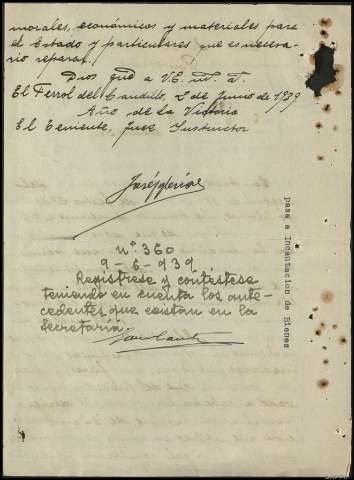 morales, económicos y materiales para
el Estado y particulares que es necesa-
rio reparar.
Dios gue a VE. m. a.
El Ferrol del Caudillo, 2 de Junio de 1939
Año de la Victoria
El Teniente, Juez Instructor
José Iglesias
pasa a Incautacion de Bienes
nº. 360
9-6-939
Registrese y contéstese
teniendo en cuenta los ante-
cedentes que existan en la
secretaría.